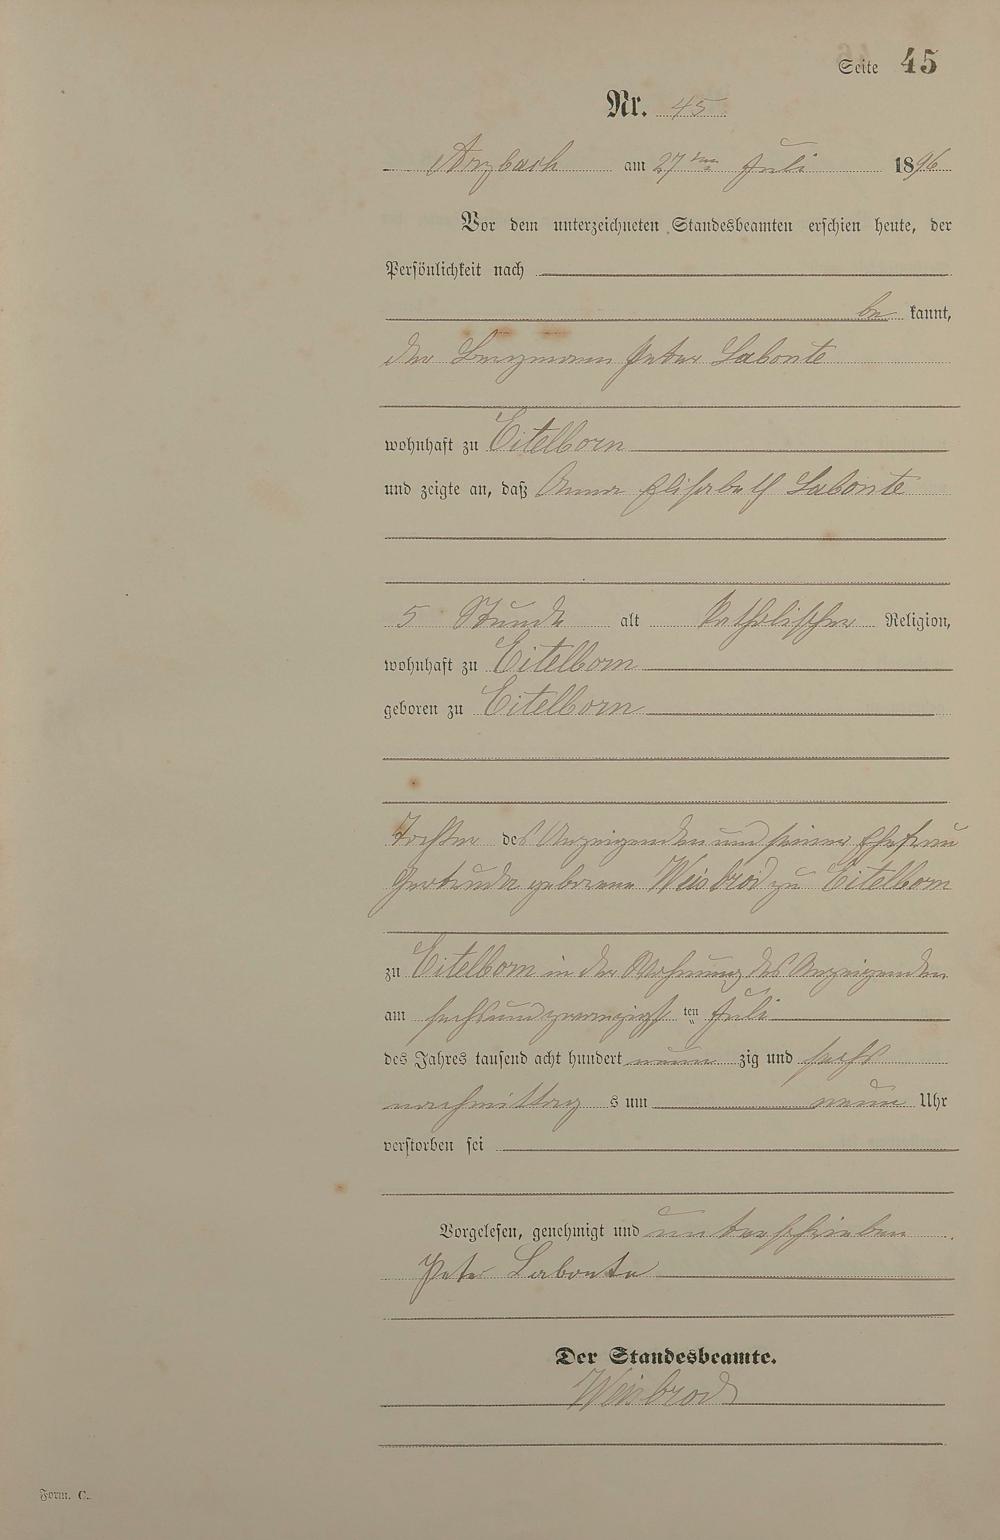 Seite 45
Nr. 45
Arzbach am 27ten Juli 1896
Vor dem unterzeichneten Standesbeamten erschien heute, der
Persönlichkeit nach
be kannt,
der Bergmann Peter Labonte
wohnhaft zu Eitelborn
und zeigte an, daß Anna Elisabeth Labonte
5 Stunde alt katholischer Religion,
wohnhaft zu Eitelborn
geboren zu Eitelborn
Tochter des Anzeigenden und seiner Ehefrau
Gertrude geborene Weisbrod zu Eitelborn
zu Eitelborn in der Wohnung des Anzeigenden
am sechsundzwanzigst ten Juli
des Jahres tausend acht hundert neun zig und sechs
nachmittag s um neun Uhr
verstorben sei
Vorgelesen, genehmigt und unterschrieben
Peter Labonte
Der Standesbeamte.
Weisbrod
Form. C.